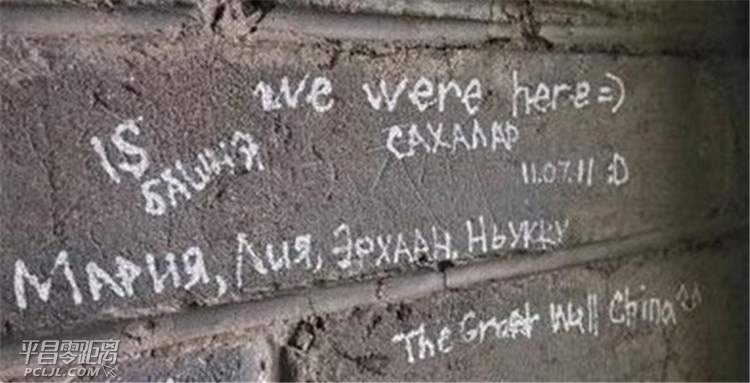 we were here =)
САХАЛАР
15
БАШНЯ
11.07.11 :D
МАРИЯ, ЛИЯ, ЭРХААН, НЬУККУ
The Great Wall China
平昌零距离
PCLJL.COM